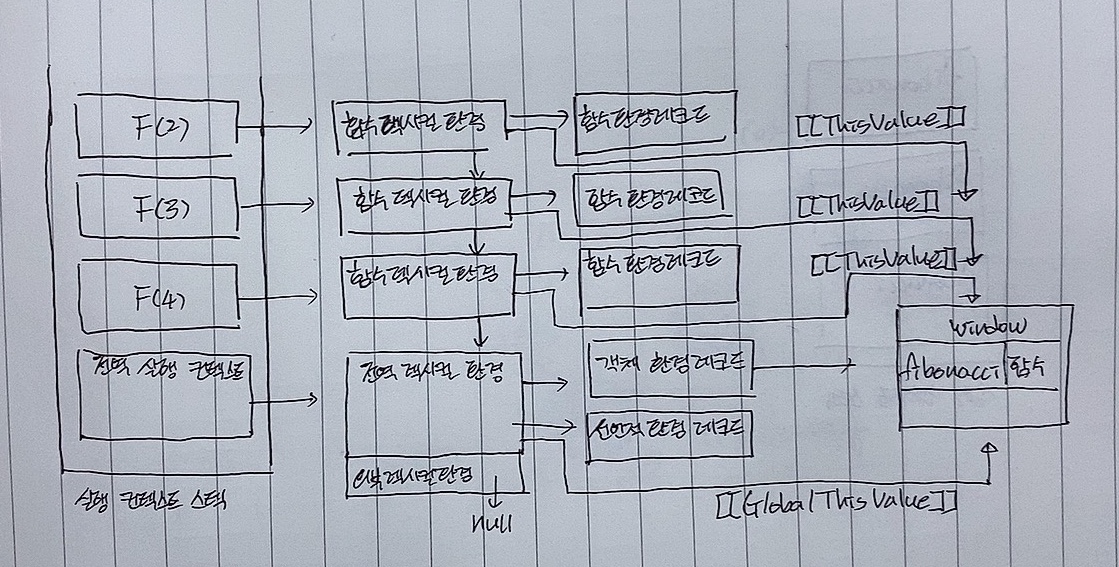 F(2)
함수 렉시컬 환경
함수 환경 레코드
[[ThisValue]]
F(3)
함수 렉시컬 환경
함수 환경 레코드
[[ThisValue]]
F(4)
함수 렉시컬 환경
함수 환경 레코드
[[ThisValue]]
window
fibonacci 함수
전역 실행 컨텍스트
전역 렉시컬 환경
객체 환경 레코드
선언적 환경 레코드
외부 렉시컬 환경
null
실행 컨텍스트 스택
[[GlobalThisValue]]